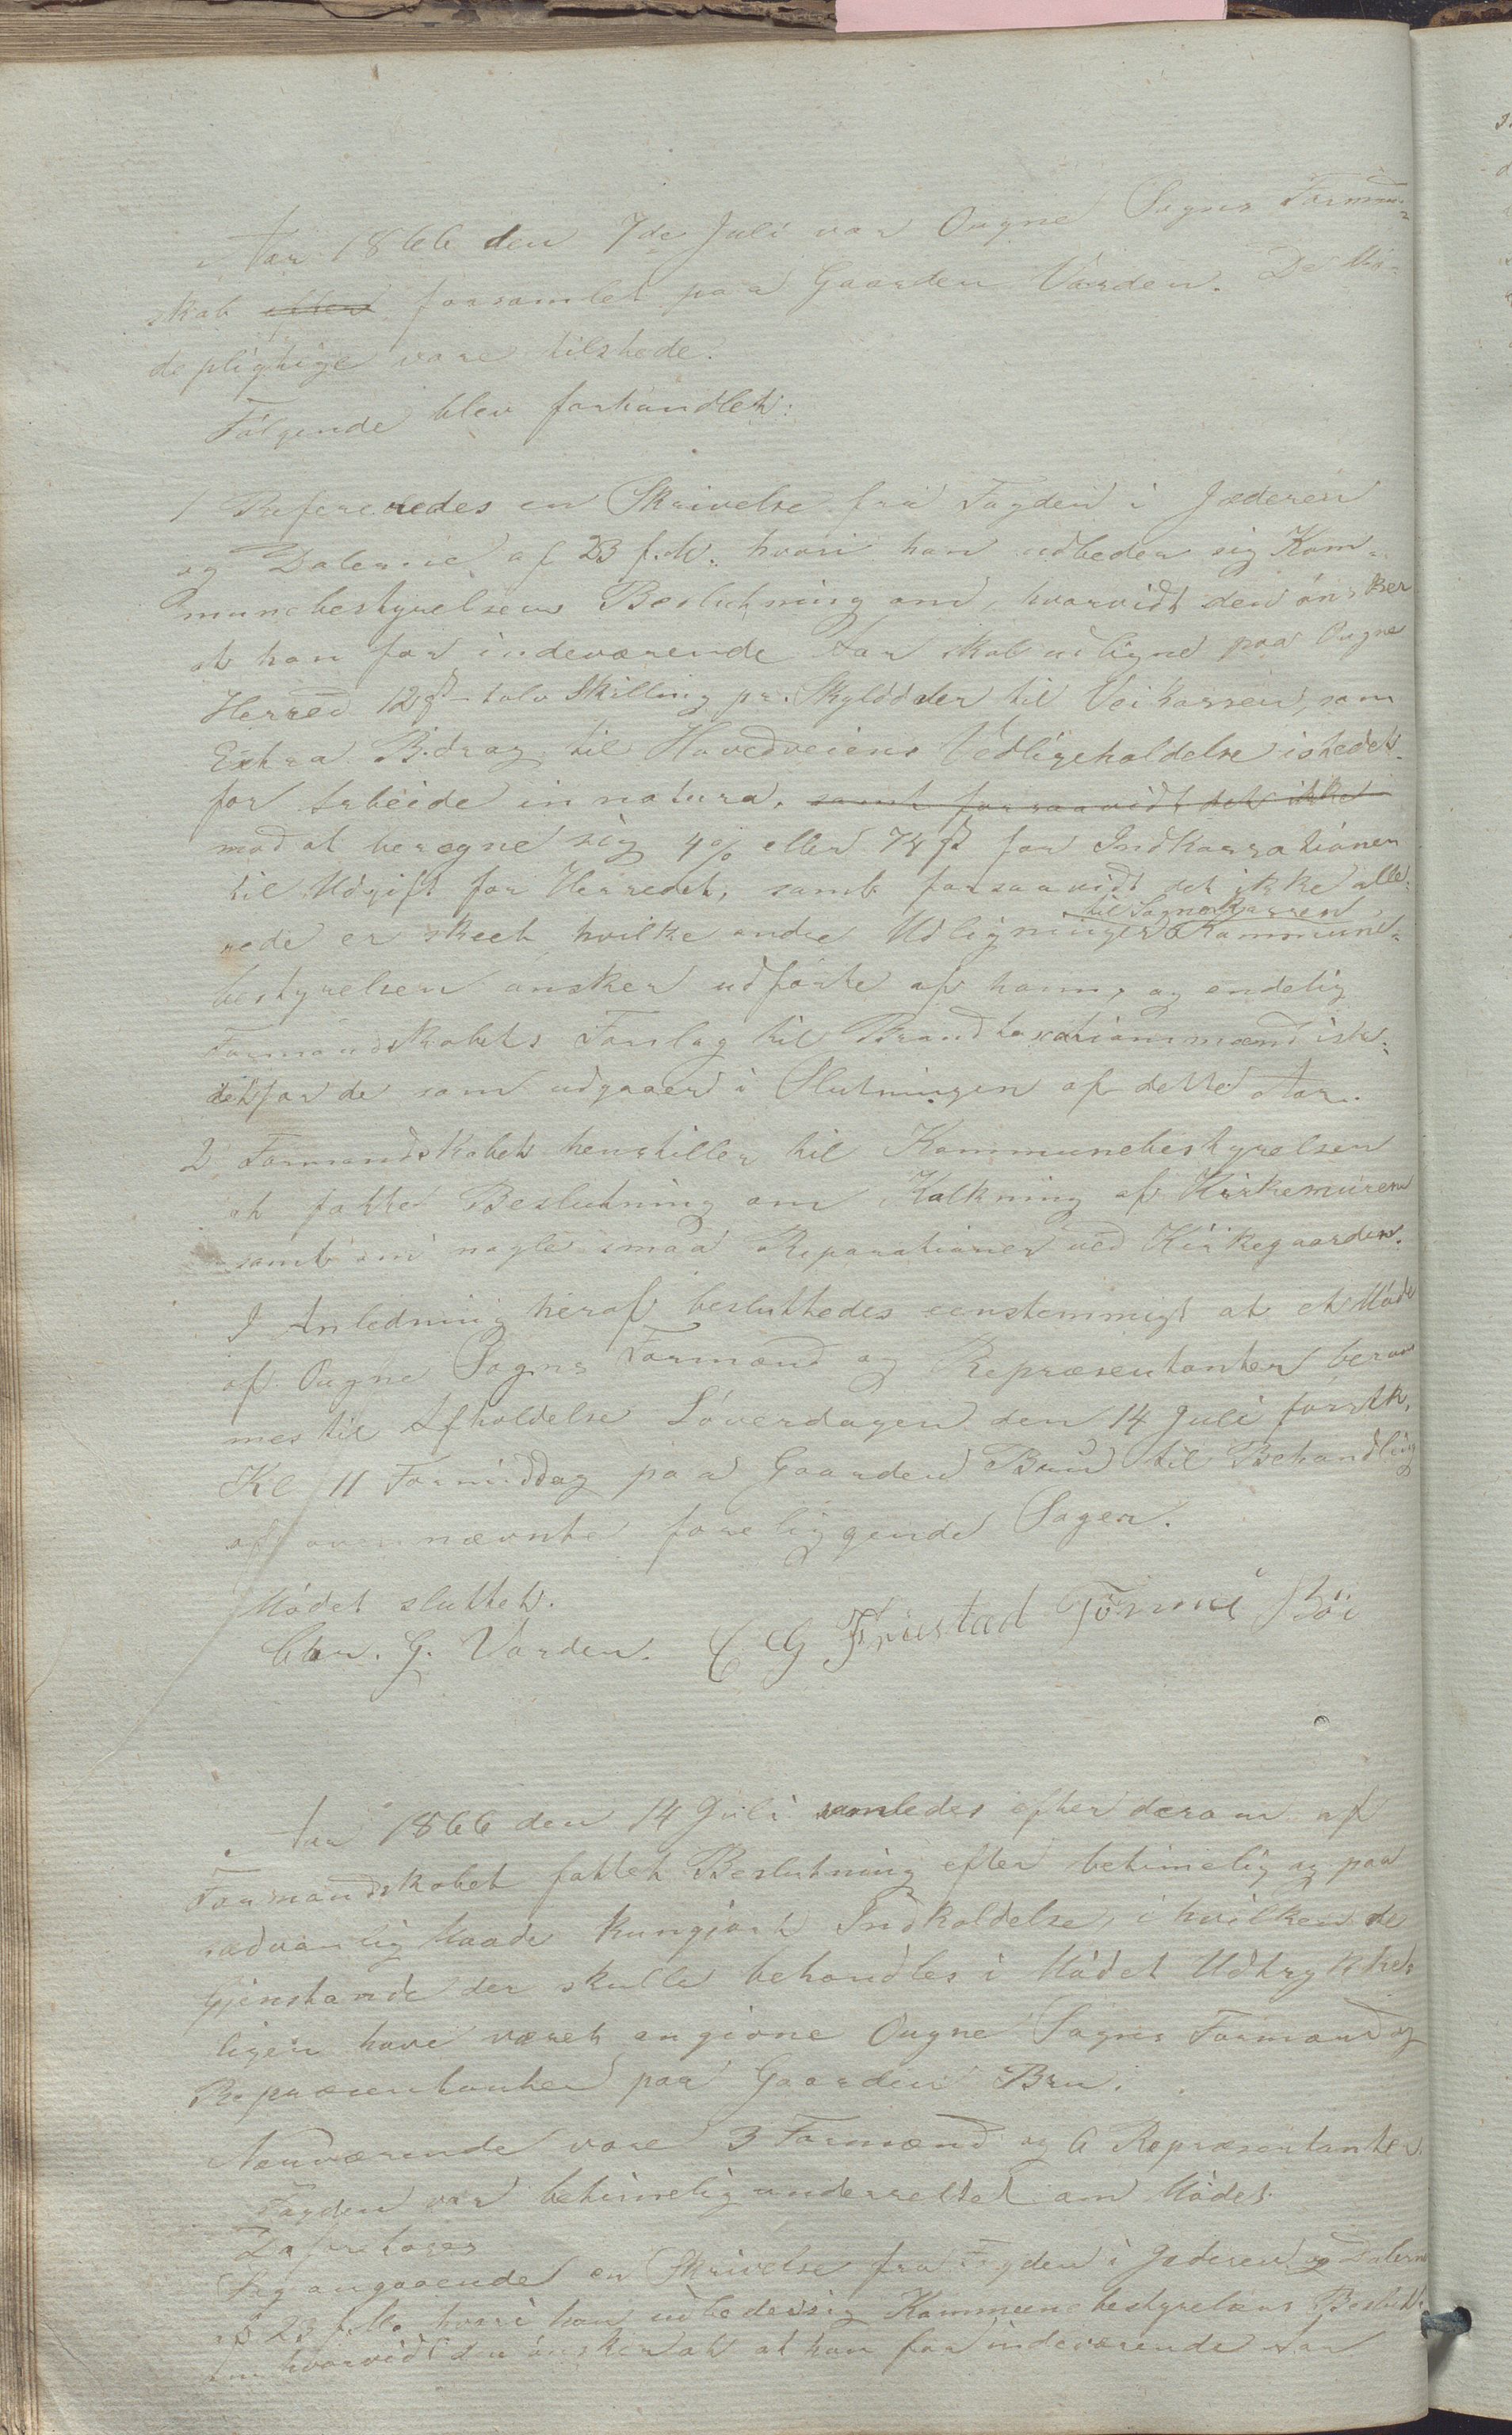 Aar 1866 den 7de Juli var Ougne Sogns Forman-
skab efter forsamlet paa Gaarden Varden. De Mö-
depligtige vare tilstede.
Fölgende blev forhandlet:
1 Refereredes en Skrivelse fra Fogden i Jæderen
og Dalerne af 23 f. M. hvori han udbeder sig Kom-
munebestyrelsens Beslutning om, hvorvidt den önsker
at han for indeværende Aar skal udligne paa Ougne
Herred 12 ß - tolv Skilling pr. Skylddaler til Veikassen, som
Extra Bidrag til Hovedveiens Vedligeholdelse istedet-
for Arbeide innatura, samt forsaavidt det ikke
mod at beregne sig 4 % eller 74 ß for Indkassationen
til Udgift for Herredet, samt forsaavidt det ikke alle-
rede er skeet hvilke andre Udligninger til Sognekassen Kommune-
bestyrelsen önsker udförte af ham, og endelig
Formandskabets Forslag til Brandtaxationsmænd iste-
detfor de som udgaaer i Slutningen af dette Aar.
2, Formandskabet henstiller til Kommunebestyrelsen
at fatte Beslutning om Kalkning af Kirkemuren
samt om nogle smaa Reparationer ved Kirkegaarden.
I Anledning heraf besluttedes eenstemmigt at et Möde
af Ougne Sogns Formænd og Repræsentanter beram
mes til Afholdelse Löverdagen den 14 Juli förstk.
Kl 11 Formiddag paa Gaarden Bru til Behandling
af ovennævnte foreliggende Sager.
Mödet sluttet.
Chr. G. Varden. C G Friestad Törmi Böi
Aar 1866 den 14 Juli samledes efter derom af
Formandskabet fattet Beslutning efter betimelig og paa
sædvanlig Maade kungjort Indkaldelse, i hvilken de
Gjenstande der skulle behandles i Mödet Udtrykke-
ligen have været angivne Ougne Sogns Formænd og
Repræsentanter paa Gaarden Bru.
Nærværende vare 3 Formænd og 6 Repræsentanter
Fogden var betimelig underrettet om Mödet.
Da foretoges
Sag angaaende en Skrivelse fra Fogden i Jæderen og Dalerne
af 23 f. M. hvori han udbeder sig Kommunebestyrelsens Beslut.
om hvorvidt den önsker at at han for indeværende Aar